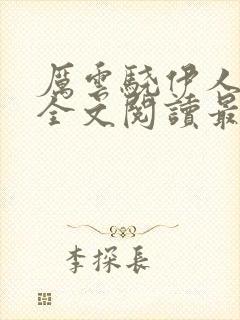 厲雲驍伊人
全文閱讀最
李探長